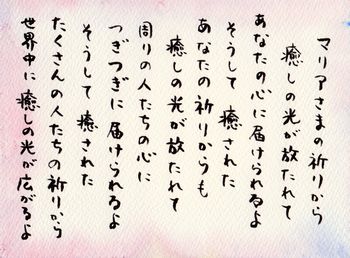 マリアさまの祈りから
癒しの光が放たれて
あなたの心に届けられるよ
そうして 癒された
あなたの祈りからも
癒しの光が放たれて
周りの人たちの心に
つぎつぎに届けられるよ
そうして 癒された
たくさんの人たちの祈りから
世界中に 癒しの光が広がるよ